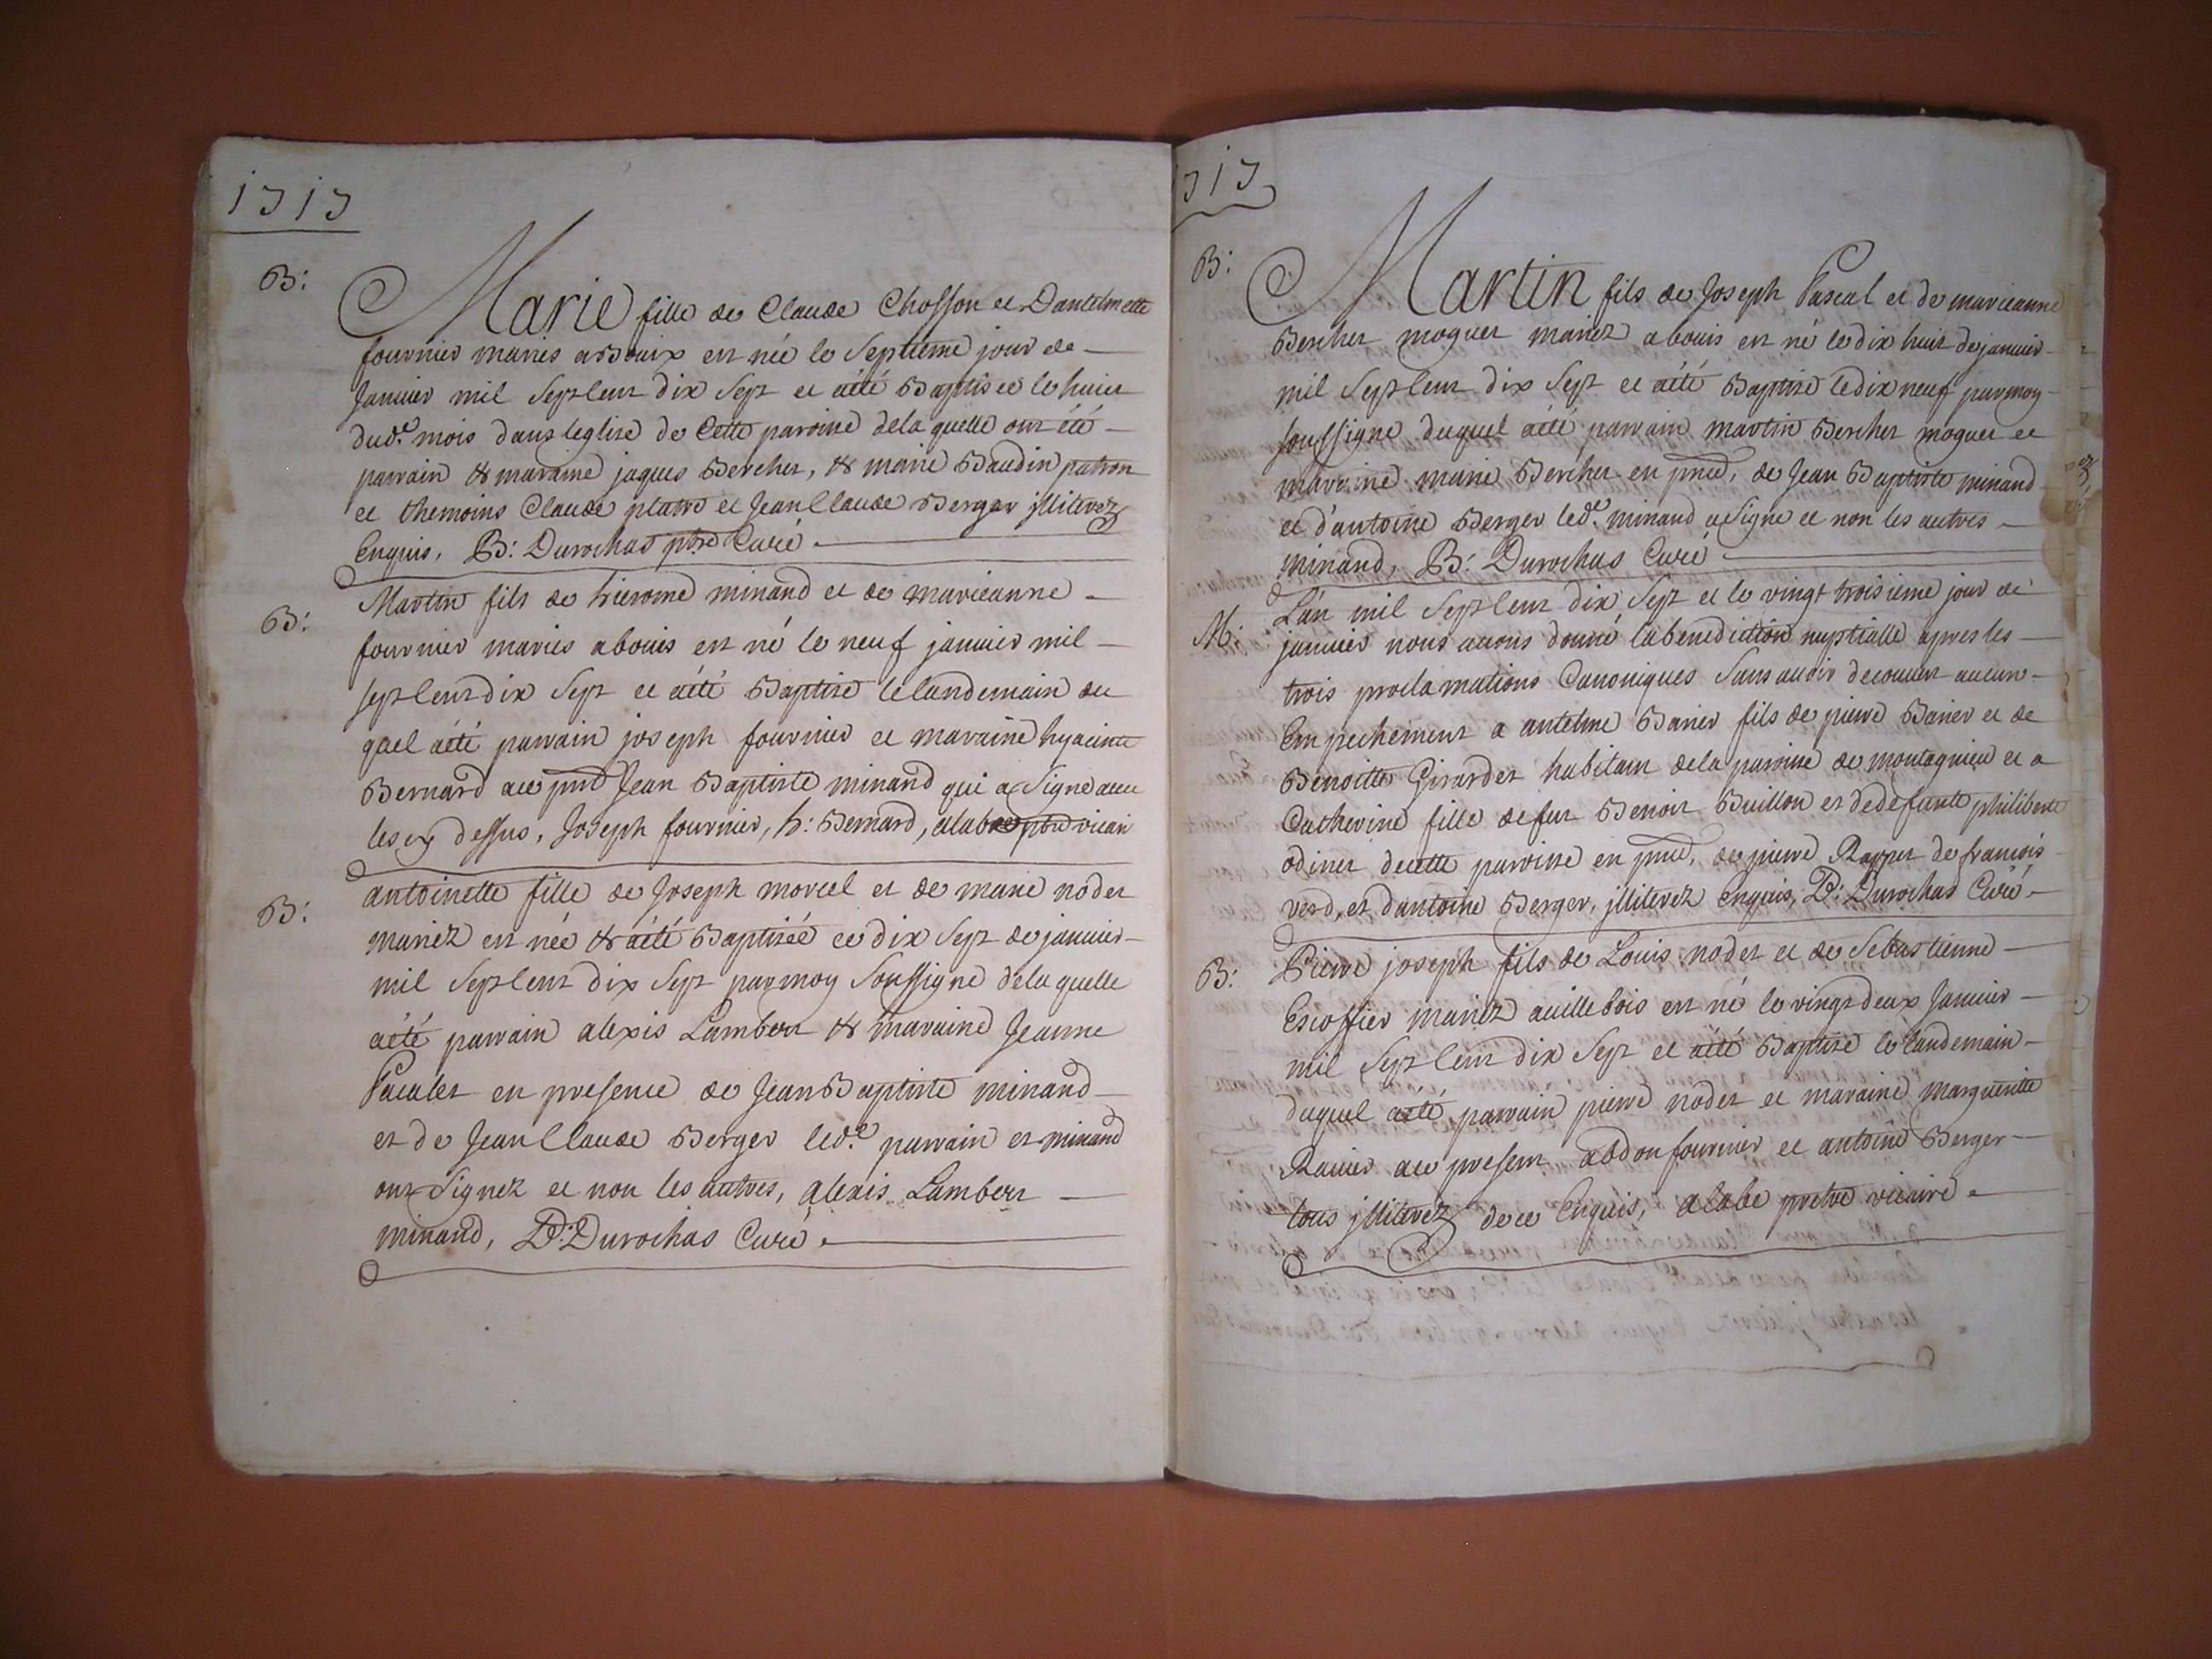 1717
B:
Marie fille de Claude Chosson et Dantelmette
fournier mariés est née le Septième jour de
Janvier mil Sept Cent dix Sept et a été Baptisée le huict
dud.t mois dans leglise de Cette paroisse de la quelle ont été
parrain & maraine jaques Bercher, & marie Baudin patron
et themoins Claude platre et Jean Claude Berger jlliterez
Enquis, B: Durochas ptre Curé
B:
Martin fils de hierome minand et de marieanne
fournier mariés a bouis est né le neuf janvier mil
sept Cent dix Sept et a été Baptisé le landemain du
quel a été parrain joseph fournier et maraine hyacinte
Bernard Jean Baptiste minand qui a Signé avec
les cy dessus, Joseph fournier, h: Bernard, alabe ptre vicair
B:
antoinette fille de Joseph morcel et de marie nodet
mariez est née & a été Baptisée ce dix Sept de janvier
mil Sept Cent dix Sept par moy Soussigné de la quelle
a été parrain alexis Lambert & maraine Jeanne
en presence de Jean Baptiste minand
et de Jean Claude Berger led.t parrain et minand
ont Signez et non les autres, alexis Lambert
minand, B: Durochas Curé
1717
B:
Martin fils de Joseph Pascal et de marieanne
Bercher moquet mariez a bouis est né le dix huit de janvier
mil Sept Cent dix Sept et a été Baptisé le dix neuf par moy
soussigné duquel a été parrain martin Bercher moquet et
maraine marie Bercher en pnce, de Jean Baptiste minand
et d'antoine Berger led.t minand a Signé et non les autres
minand, B: Durochas Curé
M:
L'an mil Sept Cent dix Sept et le vingt troisieme jour de
janvier nous avons donné la benediction nuptialle apres les
trois proclamations Canoniques Sans avoir decouvert aucun
Empechement a antelme Barier fils de pierre Barier et de
Benoitte Girardet habitant de la paroisse de montagnieu et a
Catherine fille de feu Benoit Buillon et de defunte philiberte
odinet de cette paroisse en pnce, de pierre Rapet de francois
verd, et dantoine Berger, jlliterez Enquis, B: Durochas Curé
B:
Pierre joseph fils de Louis nodet et de Sebastienne
Escoffier mariez a villebois est né le vingt deux Janvier
mil Sept Cent dix Sept et a été Baptisé le landemain
duquel a été parrain pierre nodet et maraine marguerite
Ravier present abdon fournier et antoine Berger
tous jlliterez de ce Enquis, alabe pretre vicaire